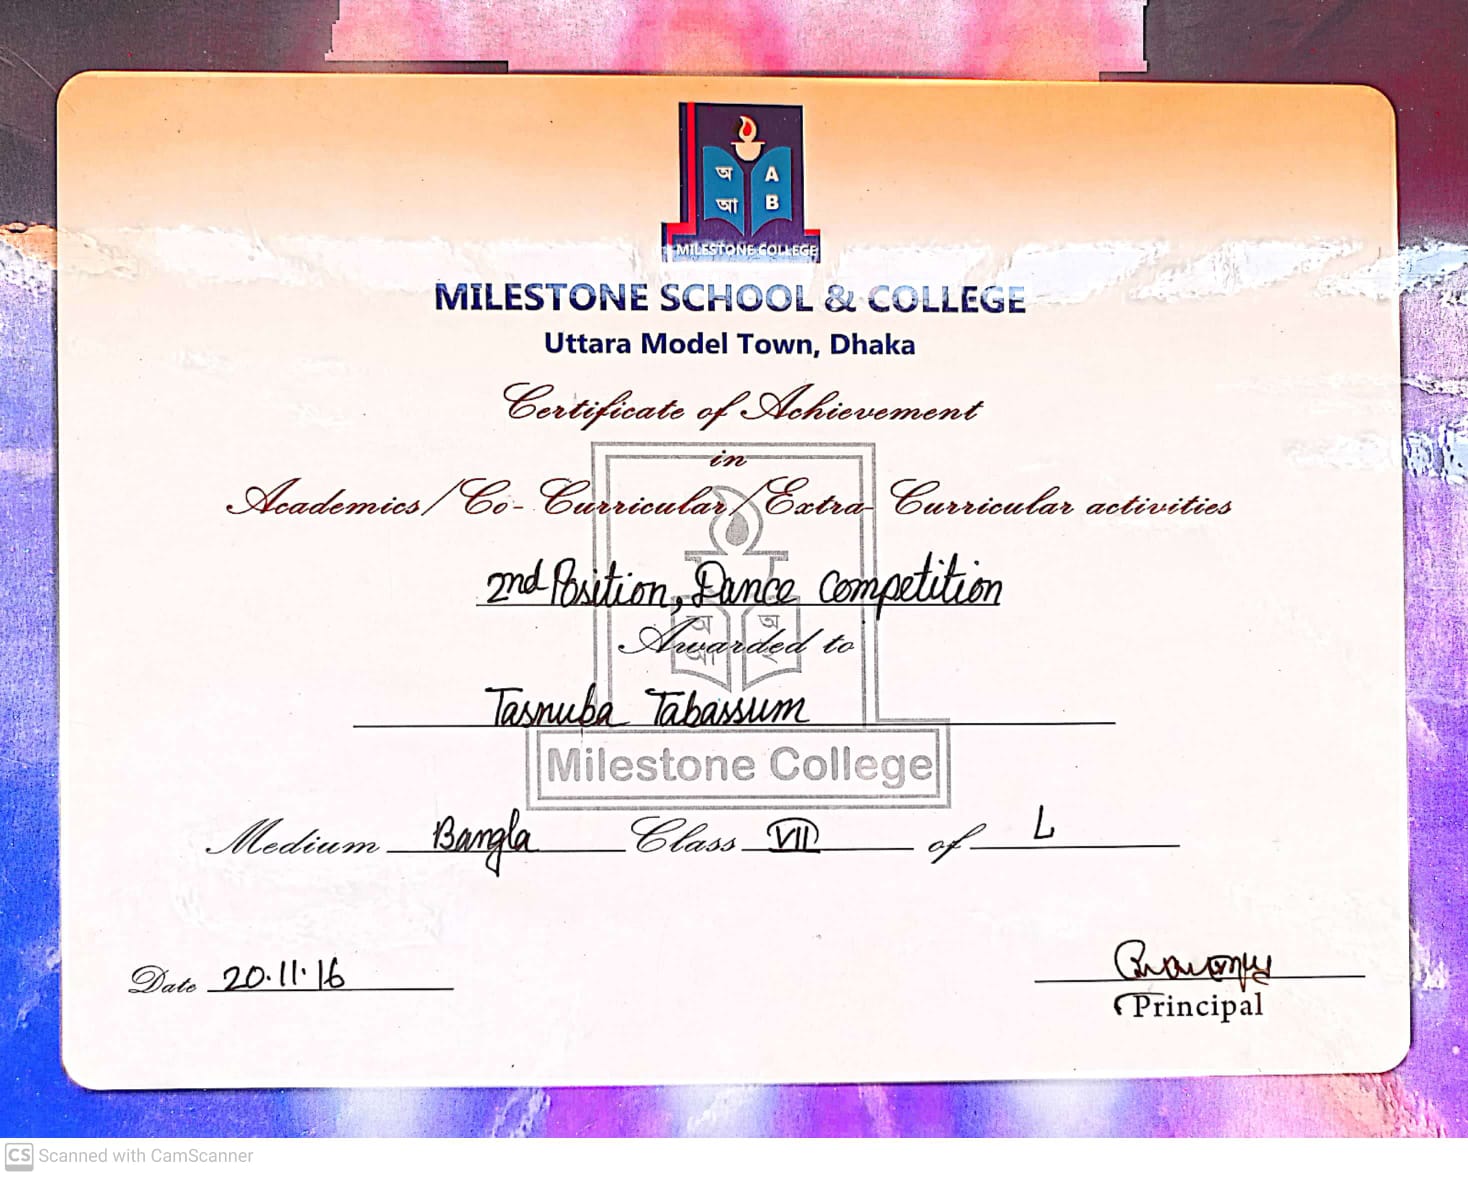 অ A
আ B
MILESTONE COLLEGE
MILESTONE SCHOOL & COLLEGE
Uttara Model Town, Dhaka
Certificate of Achievement
in
Academics/Co-Curricular/Extra-Curricular activities
2nd Position, Dance Competition
Awarded to
Tasnuba Tabassum
Milestone College
Medium Bangla Class VII of L
Date 20.11.16
Principal
CS Scanned with CamScanner